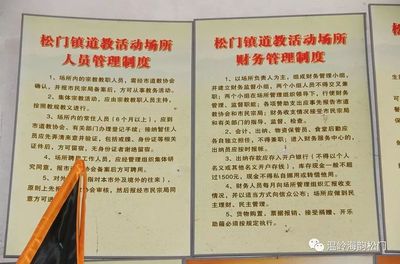 松门镇道教活动场所
人员管理制度
1、场所内的宗教教职人员，需经市道教协会
确认，并报市民宗局备案后，方可从事教务活动。
2、集体宗教活动，应由宗教教职人员主持，
按照教规教义进行。
3、场所内的常住人员（6个月以上），应到
市道教协会、有关部门办理登记手续；接纳暂住人
员应先清来意并验证，包括戒牒、身份证等相关
证件后，方可留宿，无身份证者谢绝留宿。
4、场所聘用工作人员，应经管理组织集体研
究同意，报市道教协会备案后方可聘用。
5、对外
（指对本市外及境外的往来），
原则上先报
协会审核，然后报经市民宗局同
意方可进
松门镇道教活动场所
财务管理制度
1、以场所负责人为主，组成财务管理小组，
并建立财务监督小组。两个小组人员不得交叉兼
职；两个小组在场所管理组织领导下，行使财务
管理、监督职能；各项赞助支出应事先报告市道教
协会和市民宗局；财务收支情况接受市民宗局
和有关部门的指导、监督、检查。
2、会计、出纳、物资保管员、食堂后勤应
各自独立，不得兼职；进入财务服务中心的，
出纳员应按时报账。
3、出纳存款应存入开户银行（不得以个人
名义或其他名义开户存钱），库存现金一般不超过
1500元，现金不得私自挪用或转借他用。
4、财务人员每月向场所管理组织汇报收支
情况，并以适当方式向信众公布；场所应做到民
主理财、民主管理。
5、货物购置、票据报销、接受捐赠、开乐
助箱必须按规定执行。
温岭海韵松门